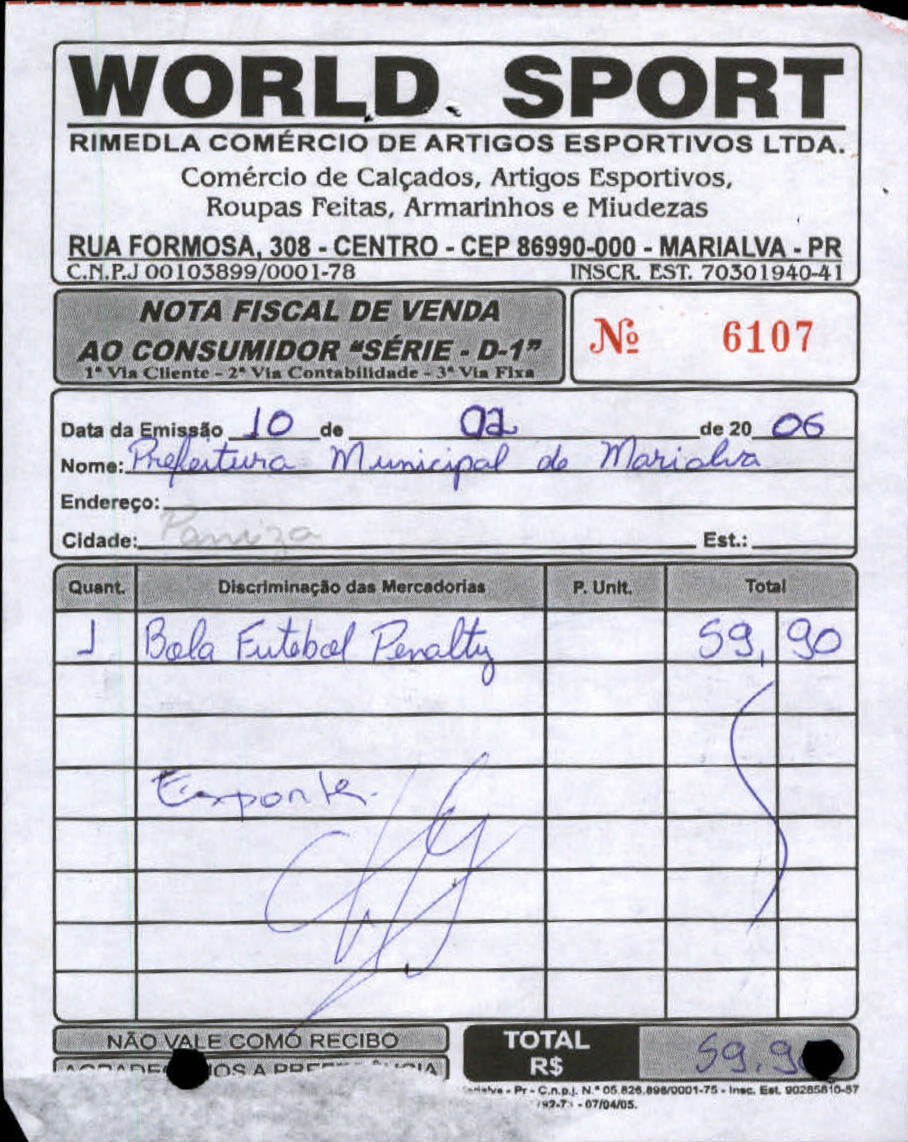 WORLD SPORT
RIMEDLA COMÉRCIO DE ARTIGOS ESPORTIVOS LTDA.
Comércio de Calçados, Artigos Esportivos,
Roupas Feitas, Armarinhos e Miudezas
RUA FORMOSA, 308 - CENTRO - CEP 86990-000 - MARIALVA - PR
C.N.P.J 00103899/0001-78 INSCR. EST. 70301940-41
NOTA FISCAL DE VENDA
AO CONSUMIDOR "SÉRIE - D-1"
1ª Via Cliente - 2ª Via Contabilidade - 3ª Via Fixa
Nº 6107
Data da Emissão 10 de 02 de 20 06
Nome: Prefeitura Municipal de Marialva
Endereço:
Cidade: Paniza Est.:
Quant. Discriminação das Mercadorias P. Unit. Total
1 Bola Futebol Penalty 59,90
Esporte.
NÃO VALE COMO RECIBO
TOTAL
R$ 59,90
A PREFERÊNCIA
- Pr - C.n.p.j. N.º 05.826.898/0001-75 - Insc. Est. 90285810-87
- 07/04/05.